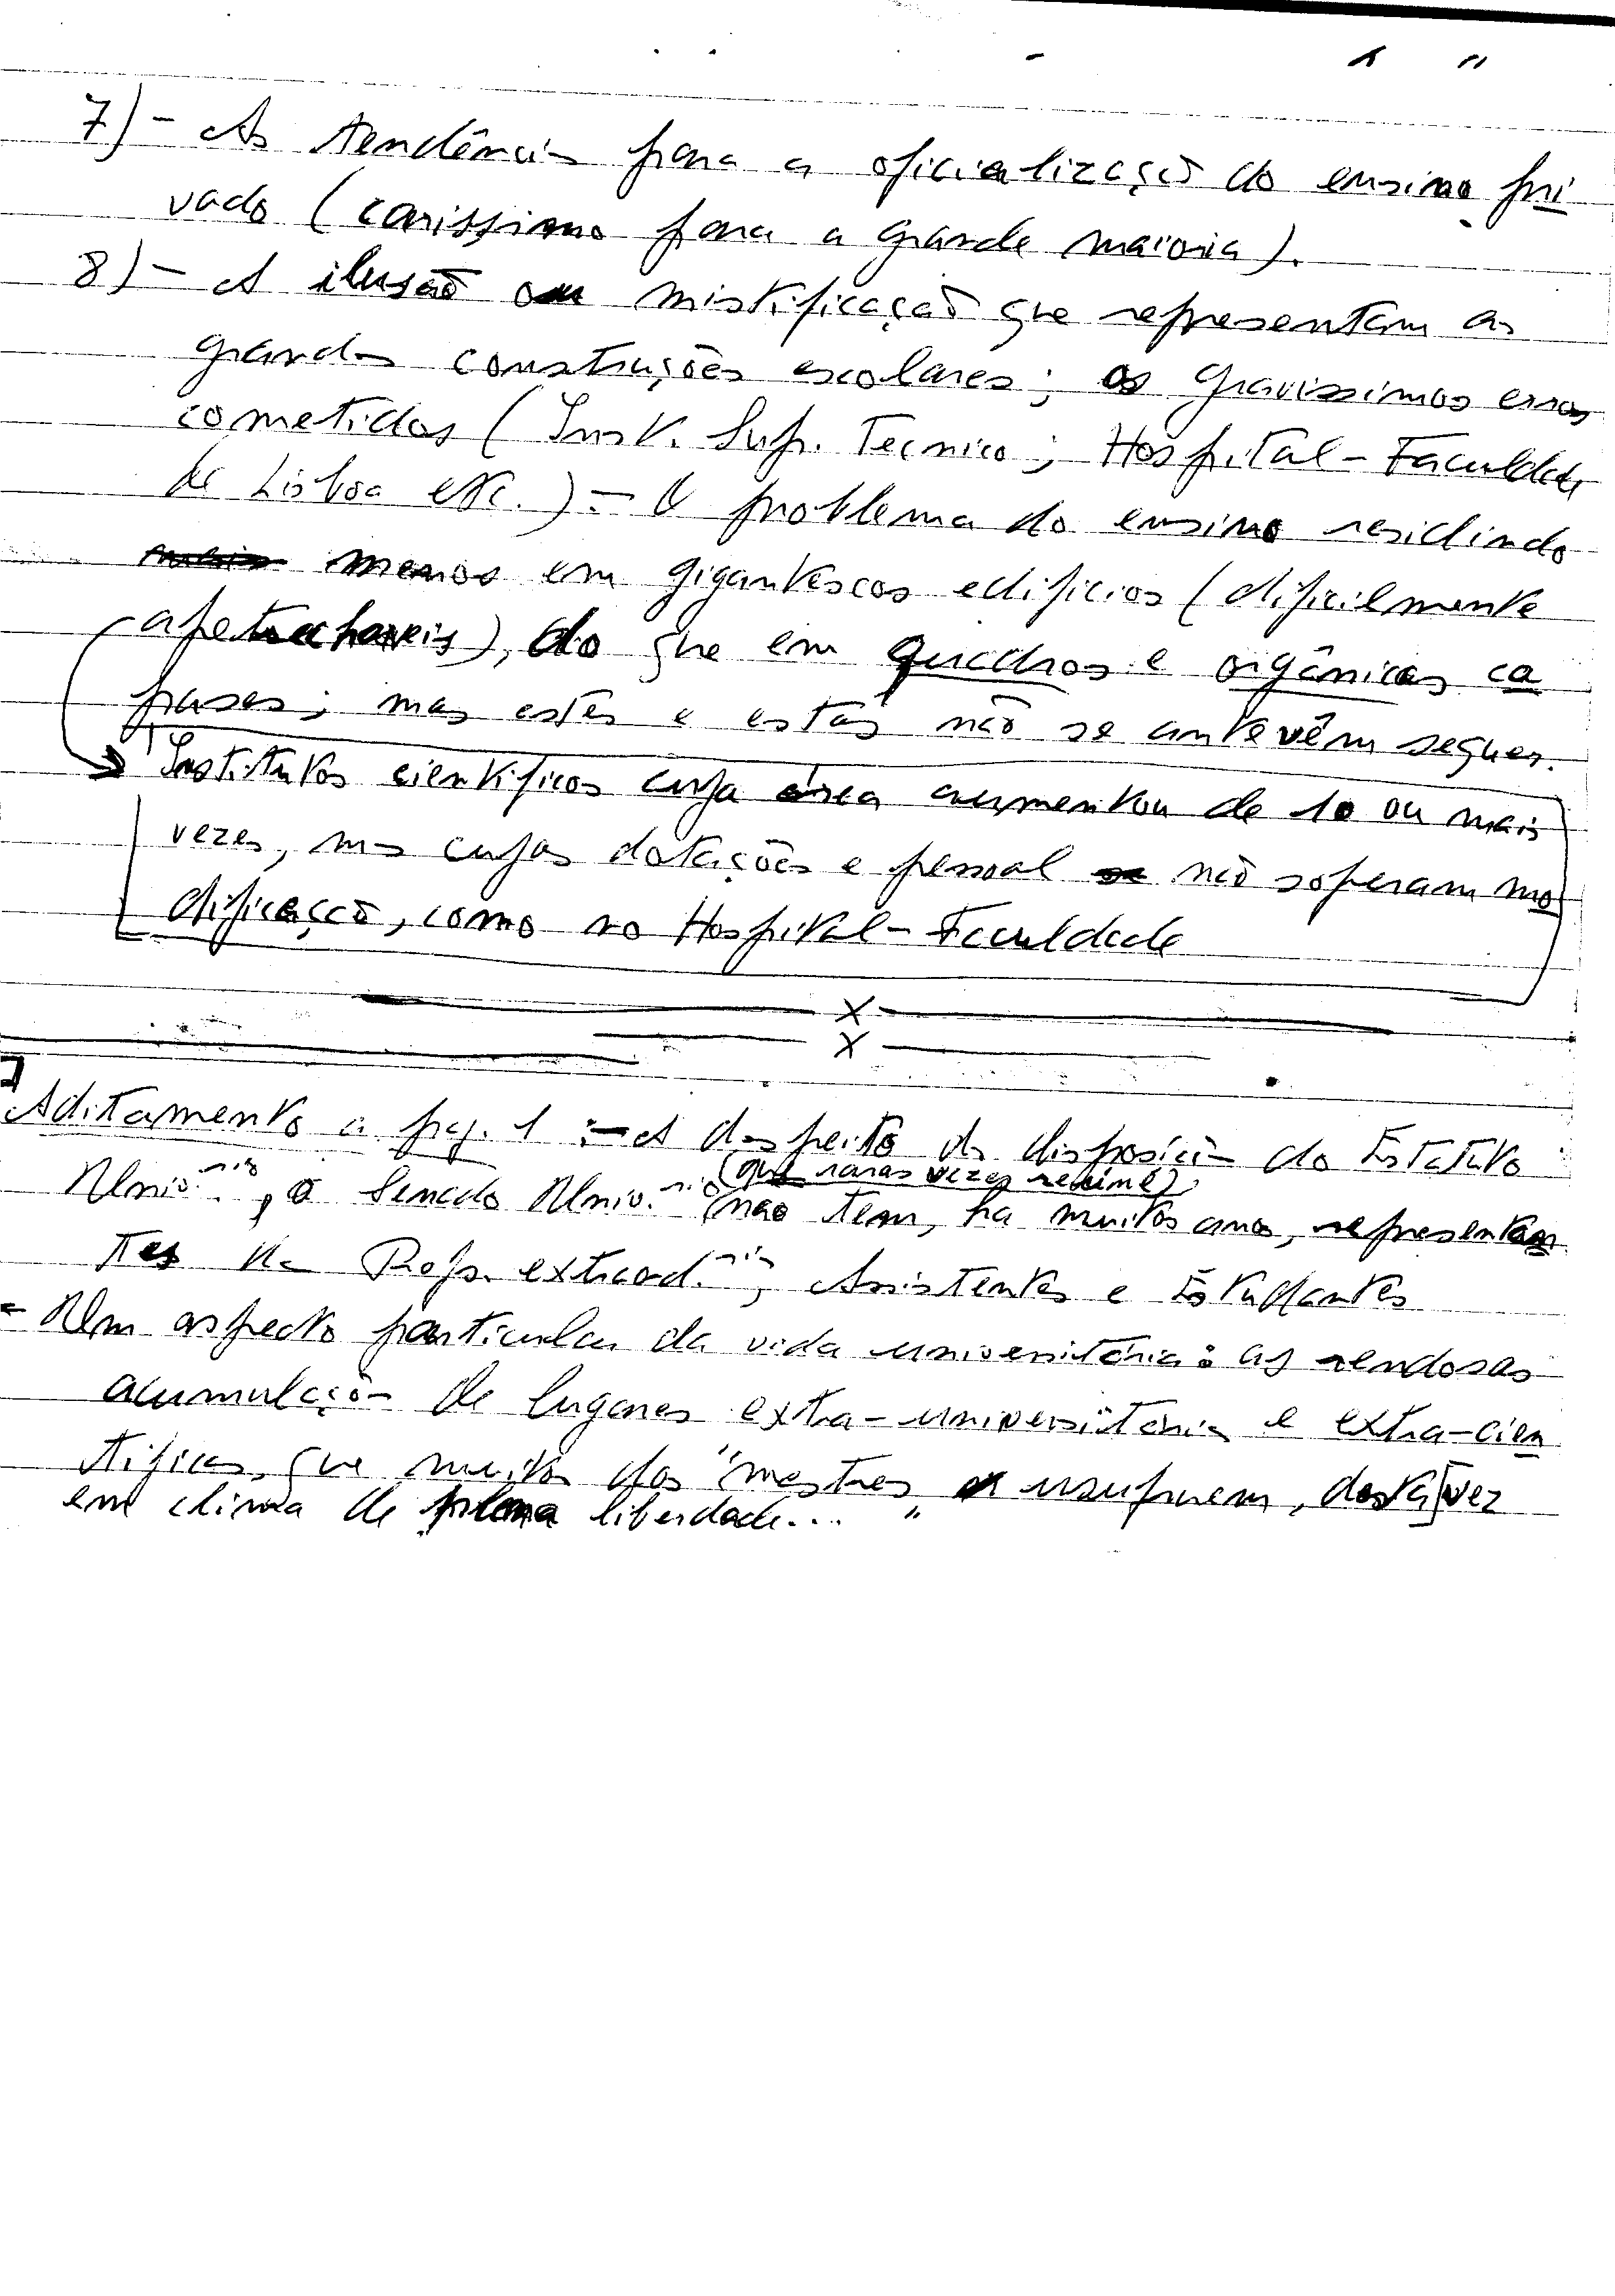 7) - As tendências para a oficialização do ensino pri
vado (carissimo para a grande maioria).
8) - A ilusão ou mistificação que representam as
grandes construções escolares; os gravissimos erros
cometidos (Inst. Sup. Tecnico; Hospital-Faculdade
de Lisboa etc.) - O problema do ensino residindo
menos em gigantescos edificios (dificilmente
apetrechaveis), do que em quadros e orgânicas ca
pazes; mas estes e estas não se antevêm sequer.
Institutos cientificos cuja área aumentou de 10 ou mais
vezes, mas cujas dotações e pessoal não sofreram mo
dificação, como no Hospital-Faculdade
X
X
Aditamento a pag. 1 :- A despeito das disposições do Estatuto
(que raras vezes reúne)
Univ.rio, o Senado Univ.rio não tem, ha muitos anos, representan
tes dos Profs. extraord.rios, Assistentes e Estudantes
- Um aspecto particular da vida universitária: as rendosas
acumulações de lugares extra-universitários e extra-cien
tificos, que muitos dos "mestres" usufruem, desta vez
em clima de plena liberdade...